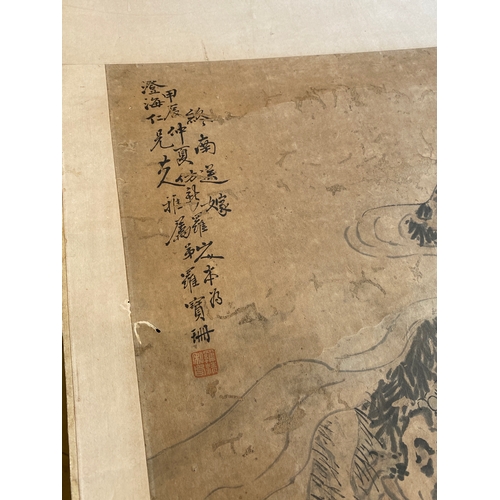 終南送嫁
甲辰仲夏仿新羅山人本為
澄海仁兄大人雅屬弟羅寶珊